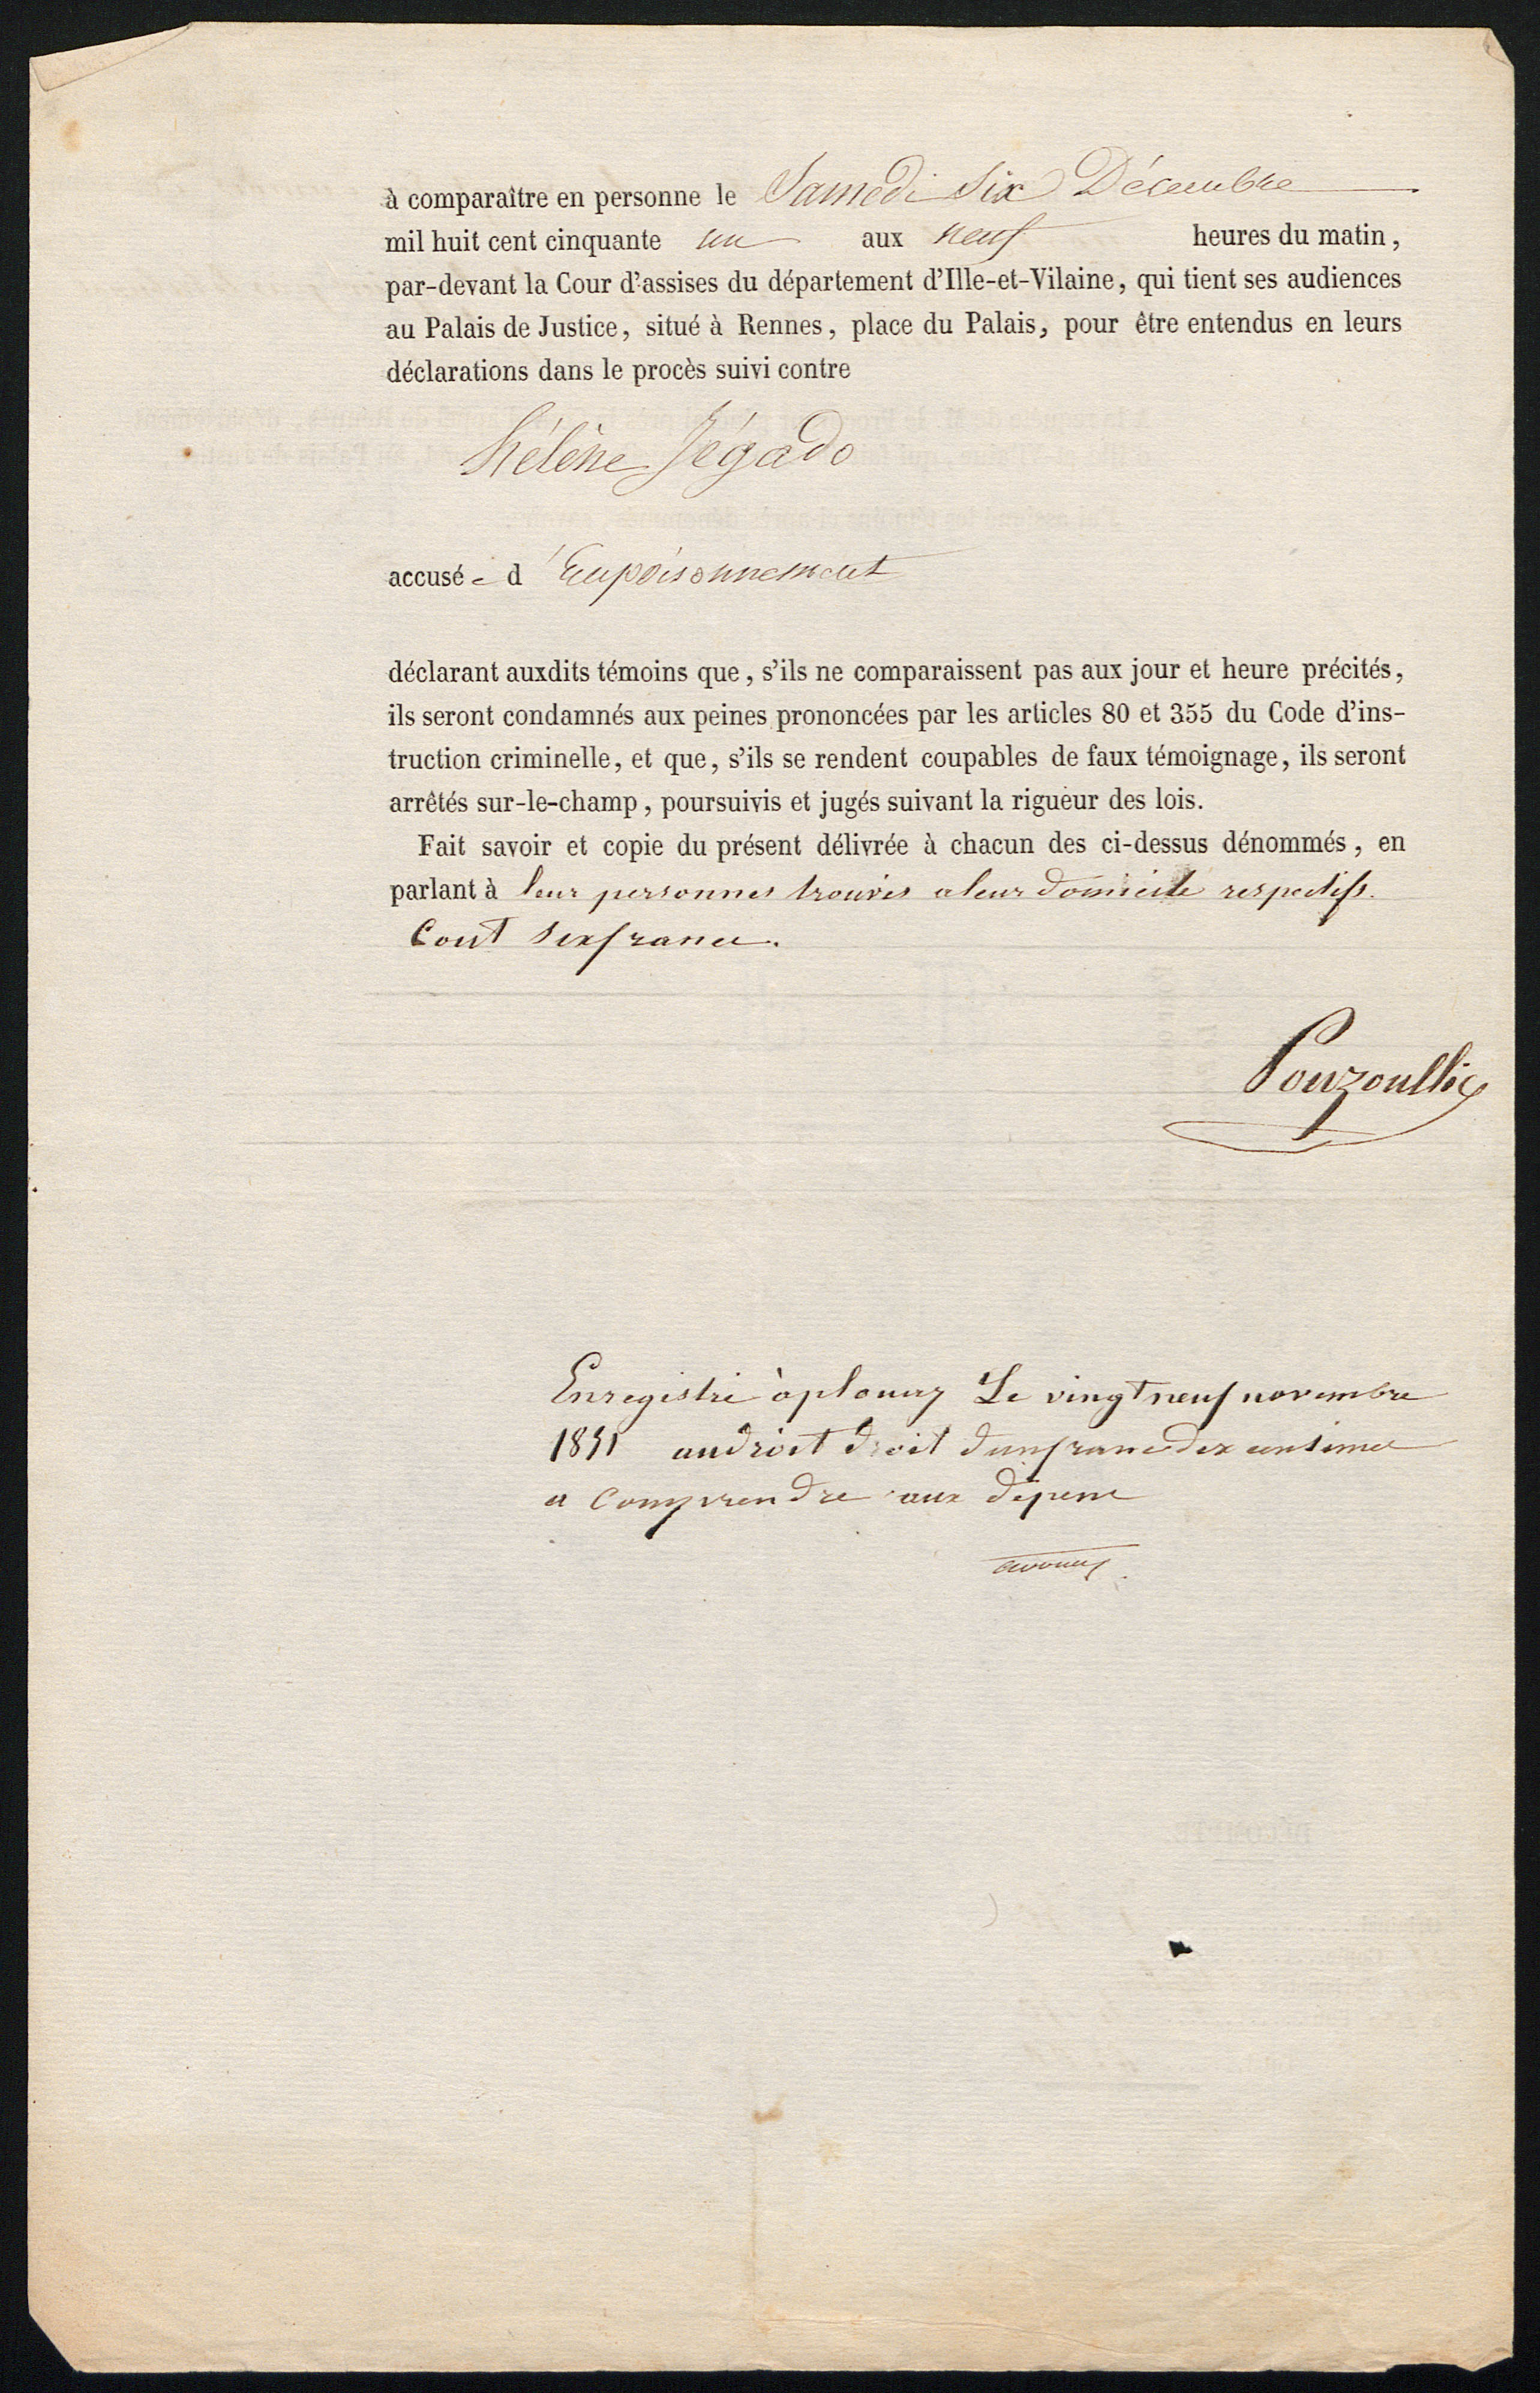 à comparaître en personne le Samedi Six Décembre
mil huit cent cinquante un aux neuf heures du matin,
par-devant la Cour d'assises du département d'Ille-et-Vilaine, qui tient ses audiences
au Palais de Justice, situé à Rennes, place du Palais, pour être entendus en leurs
déclarations dans le procès suivi contre
Hélène Jégado
accusée d'Empoisonnement
déclarant auxdits témoins que, s'ils ne comparaissent pas aux jour et heure précités,
ils seront condamnés aux peines prononcées par les articles 80 et 355 du Code d'ins-
truction criminelle, et que, s'ils se rendent coupables de faux témoignage, ils seront
arrêtés sur-le-champ, poursuivis et jugés suivant la rigueur des lois.
Fait savoir et copie du présent délivrée à chacun des ci-dessus dénommés, en
parlant à leur personnes trouvés a leur domicile respectifs.
Cout six francs.
Pouzoullic
Enregistré à plouay Le vingt neuf novembre
1851 au droit droit d'un franc dix centimes
a Comprendre aux dépens